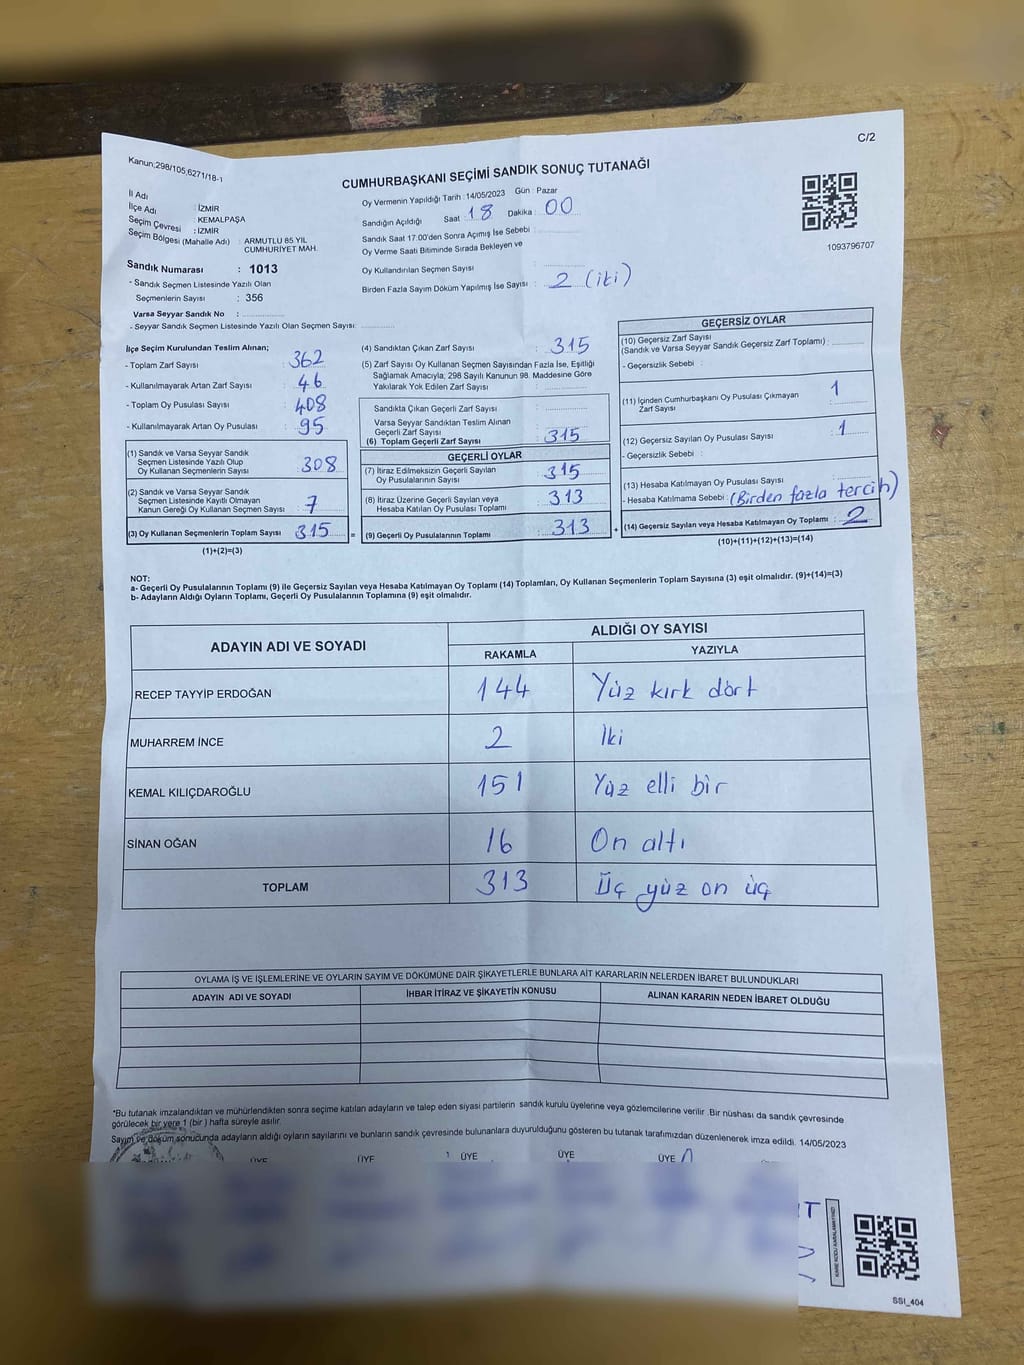 C/2
Kanun;298/105,6271/18-1
CUMHURBAŞKANI SEÇİMİ SANDIK SONUÇ TUTANAĞI
İl Adı : İZMİR
İlçe Adı : KEMALPAŞA
Seçim Çevresi : İZMİR
Seçim Bölgesi (Mahalle Adı) : ARMUTLU 85 YIL CUMHURİYET MAH.
Sandık Numarası : 1013
- Sandık Seçmen Listesinde Yazılı Olan
Seçmenlerin Sayısı : 356
Varsa Seyyar Sandık No :
- Seyyar Sandık Seçmen Listesinde Yazılı Olan Seçmen Sayısı:
Oy Vermenin Yapıldığı Tarih : 14/05/2023 Gün : Pazar
Sandığın Açıldığı Saat : 18 Dakika : 00
Sandık Saat 17:00'den Sonra Açımış İse Sebebi :
Oy Verme Saati Bitiminde Sırada Bekleyen ve
Oy Kullandırılan Seçmen Sayısı :
Birden Fazla Sayım Döküm Yapılmış İse Sayısı : 2 (iki)
1093796707
İlçe Seçim Kurulundan Teslim Alınan;
- Toplam Zarf Sayısı : 362
- Kullanılmayarak Artan Zarf Sayısı : 46
- Toplam Oy Pusulası Sayısı : 408
- Kullanılmayarak Artan Oy Pusulası : 95
(1) Sandık ve Varsa Seyyar Sandık
Seçmen Listesinde Yazılı Olup
Oy Kullanan Seçmenlerin Sayısı : 308
(2) Sandık ve Varsa Seyyar Sandık
Seçmen Listesinde Kayıtlı Olmayan
Kanun Gereği Oy Kullanan Seçmen Sayısı : 7
(3) Oy Kullanan Seçmenlerin Toplam Sayısı : 315 =
(1)+(2)=(3)
(4) Sandıktan Çıkan Zarf Sayısı : 315
(5) Zarf Sayısı Oy Kullanan Seçmen Sayısından Fazla İse, Eşitliği
Sağlamak Amacıyla, 298 Sayılı Kanunun 98. Maddesine Göre
Yakılarak Yok Edilen Zarf Sayısı :
Sandıkta Çıkan Geçerli Zarf Sayısı :
Varsa Seyyar Sandıktan Teslim Alınan
Geçerli Zarf Sayısı :
(6) Toplam Geçerli Zarf Sayısı : 315
GEÇERLİ OYLAR
(7) İtiraz Edilmeksizin Geçerli Sayılan
Oy Pusulalarının Sayısı : 315
(8) İtiraz Üzerine Geçerli Sayılan veya
Hesaba Katılan Oy Pusulası Toplamı : 313
(9) Geçerli Oy Pusulalarının Toplamı : 313 +
GEÇERSİZ OYLAR
(10) Geçersiz Zarf Sayısı
(Sandık ve Varsa Seyyar Sandık Geçersiz Zarf Toplamı) :
- Geçersizlik Sebebi :
(11) İçinden Cumhurbaşkanı Oy Pusulası Çıkmayan
Zarf Sayısı : 1
(12) Geçersiz Sayılan Oy Pusulası Sayısı : 1
- Geçersizlik Sebebi :
(13) Hesaba Katılmayan Oy Pusulası Sayısı :
- Hesaba Katılmama Sebebi : (Birden fazla tercih)
(14) Geçersiz Sayılan veya Hesaba Katılmayan Oy Toplamı : 2
(10)+(11)+(12)+(13)=(14)
NOT:
a- Geçerli Oy Pusulalarının Toplamı (9) ile Geçersiz Sayılan veya Hesaba Katılmayan Oy Toplamı (14) Toplamları, Oy Kullanan Seçmenlerin Toplam Sayısına (3) eşit olmalıdır. (9)+(14)=(3)
b- Adayların Aldığı Oyların Toplamı, Geçerli Oy Pusulalarının Toplamına (9) eşit olmalıdır.
ADAYIN ADI VE SOYADI ALDIĞI OY SAYISI
RAKAMLA YAZIYLA
RECEP TAYYİP ERDOĞAN 144 Yüz kırk dört
MUHARREM İNCE 2 İki
KEMAL KILIÇDAROĞLU 151 Yüz elli bir
SİNAN OĞAN 16 On altı
TOPLAM 313 Üç yüz on üç
OYLAMA İŞ VE İŞLEMLERİNE VE OYLARIN SAYIM VE DÖKÜMÜNE DAİR ŞİKAYETLERLE BUNLARA AİT KARARLARIN NELERDEN İBARET BULUNDUKLARI
ADAYIN ADI VE SOYADI İHBAR İTİRAZ VE ŞİKAYETİN KONUSU ALINAN KARARIN NEDEN İBARET OLDUĞU
*Bu tutanak imzalandıktan ve mühürlendikten sonra seçime katılan adayların ve talep eden siyasi partilerin sandık kurulu üyelerine veya gözlemcilerine verilir .Bir nüshası da sandık çevresinde
görülecek bir yere 1 (bir ) hafta süreyle asılır.
Sayım ve döküm sonucunda adayların aldığı oyların sayılarını ve bunların sandık çevresinde bulunanlara duyurulduğunu gösteren bu tutanak tarafımızdan düzenlenerek imza edildi. 14/05/2023
ÜYE ÜYE ÜYE ÜYE ÜYE
SSI_404